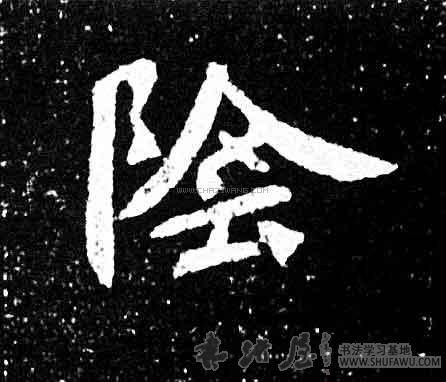 陰
WWW.CHAZIWANG.COM
书法学习基地
WWW.SHUFAWU.COM